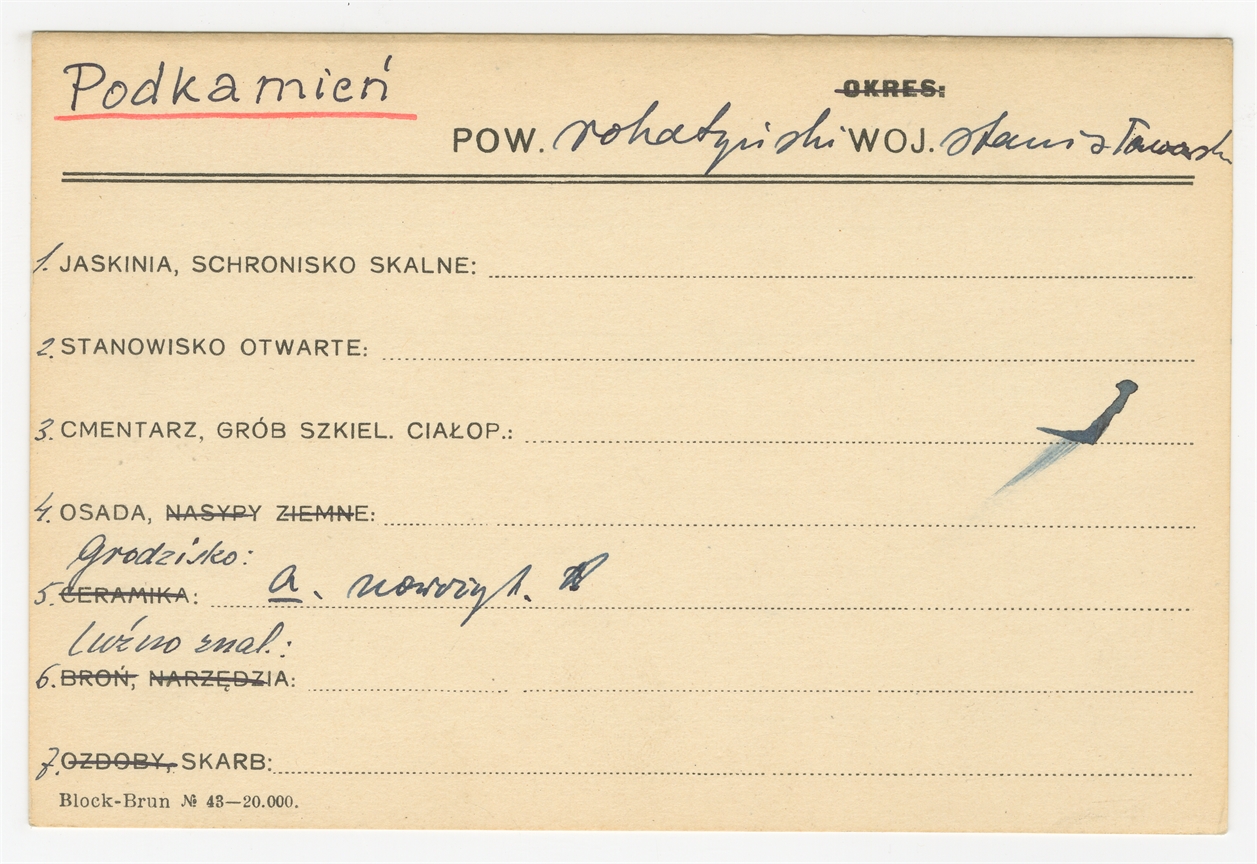 Podkamień
OKRES:
POW. rohatyński WOJ. stanisławowski
1. JASKINIA, SCHRONISKO SKALNE:
2. STANOWISKO OTWARTE:
3. CMENTARZ, GRÓB SZKIEL. CIAŁOP.:
4. OSADA, NASYPY ZIEMNE:
Grodzisko:
5. CERAMIKA: a. nowożyt.
Luźno znal.:
6. BROŃ, NARZĘDZIA:
7. OZDOBY, SKARB:
Block-Brun № 43—20.000.